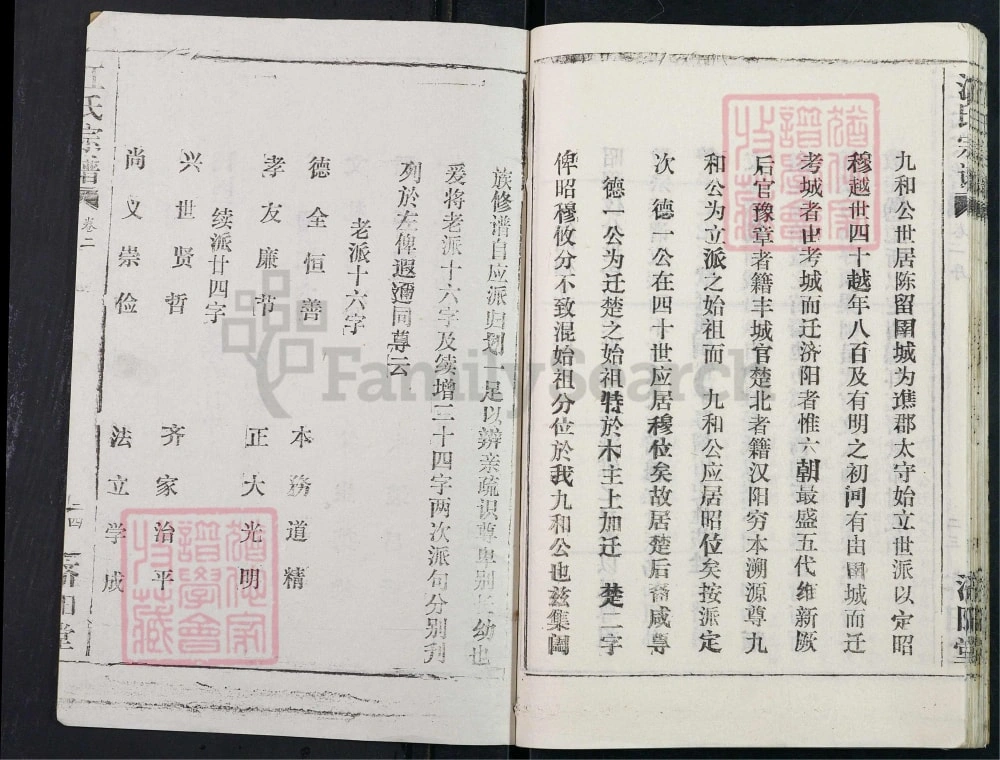 江氏宗谱
济阳堂
九和公世居陈留圉城为谯郡太守始立世派以定昭
穆越世四十越年八百及有明之初间有由圉城而迁
考城者由考城而迁济阳者惟六朝最盛五代维新厥
后官豫章者籍丰城官楚北者籍汉阳穷本溯源尊九
和公为立派之始祖而 九和公应居昭位矣按派定
次 德一公在四十世应居穆位矣故居楚后裔咸尊
德一公为迁楚之始祖特於木主上加迁 楚二字
俾昭穆攸分不致混始祖分位於我九和公也兹集阖
族修谱自应派归划一足以辨亲疏识尊卑别长幼也
爰将老派十六字及续增二十四字两次派句分别刋
列於左俾遐邇同尊云
老派十六字
德全恒善 本務道精
孝友廉节 正大光明
续派廿四字
兴世贤哲 齐家治平
尚义崇俭 法立学成
江氏宗谱
卷二
济阳堂
FamilySearch